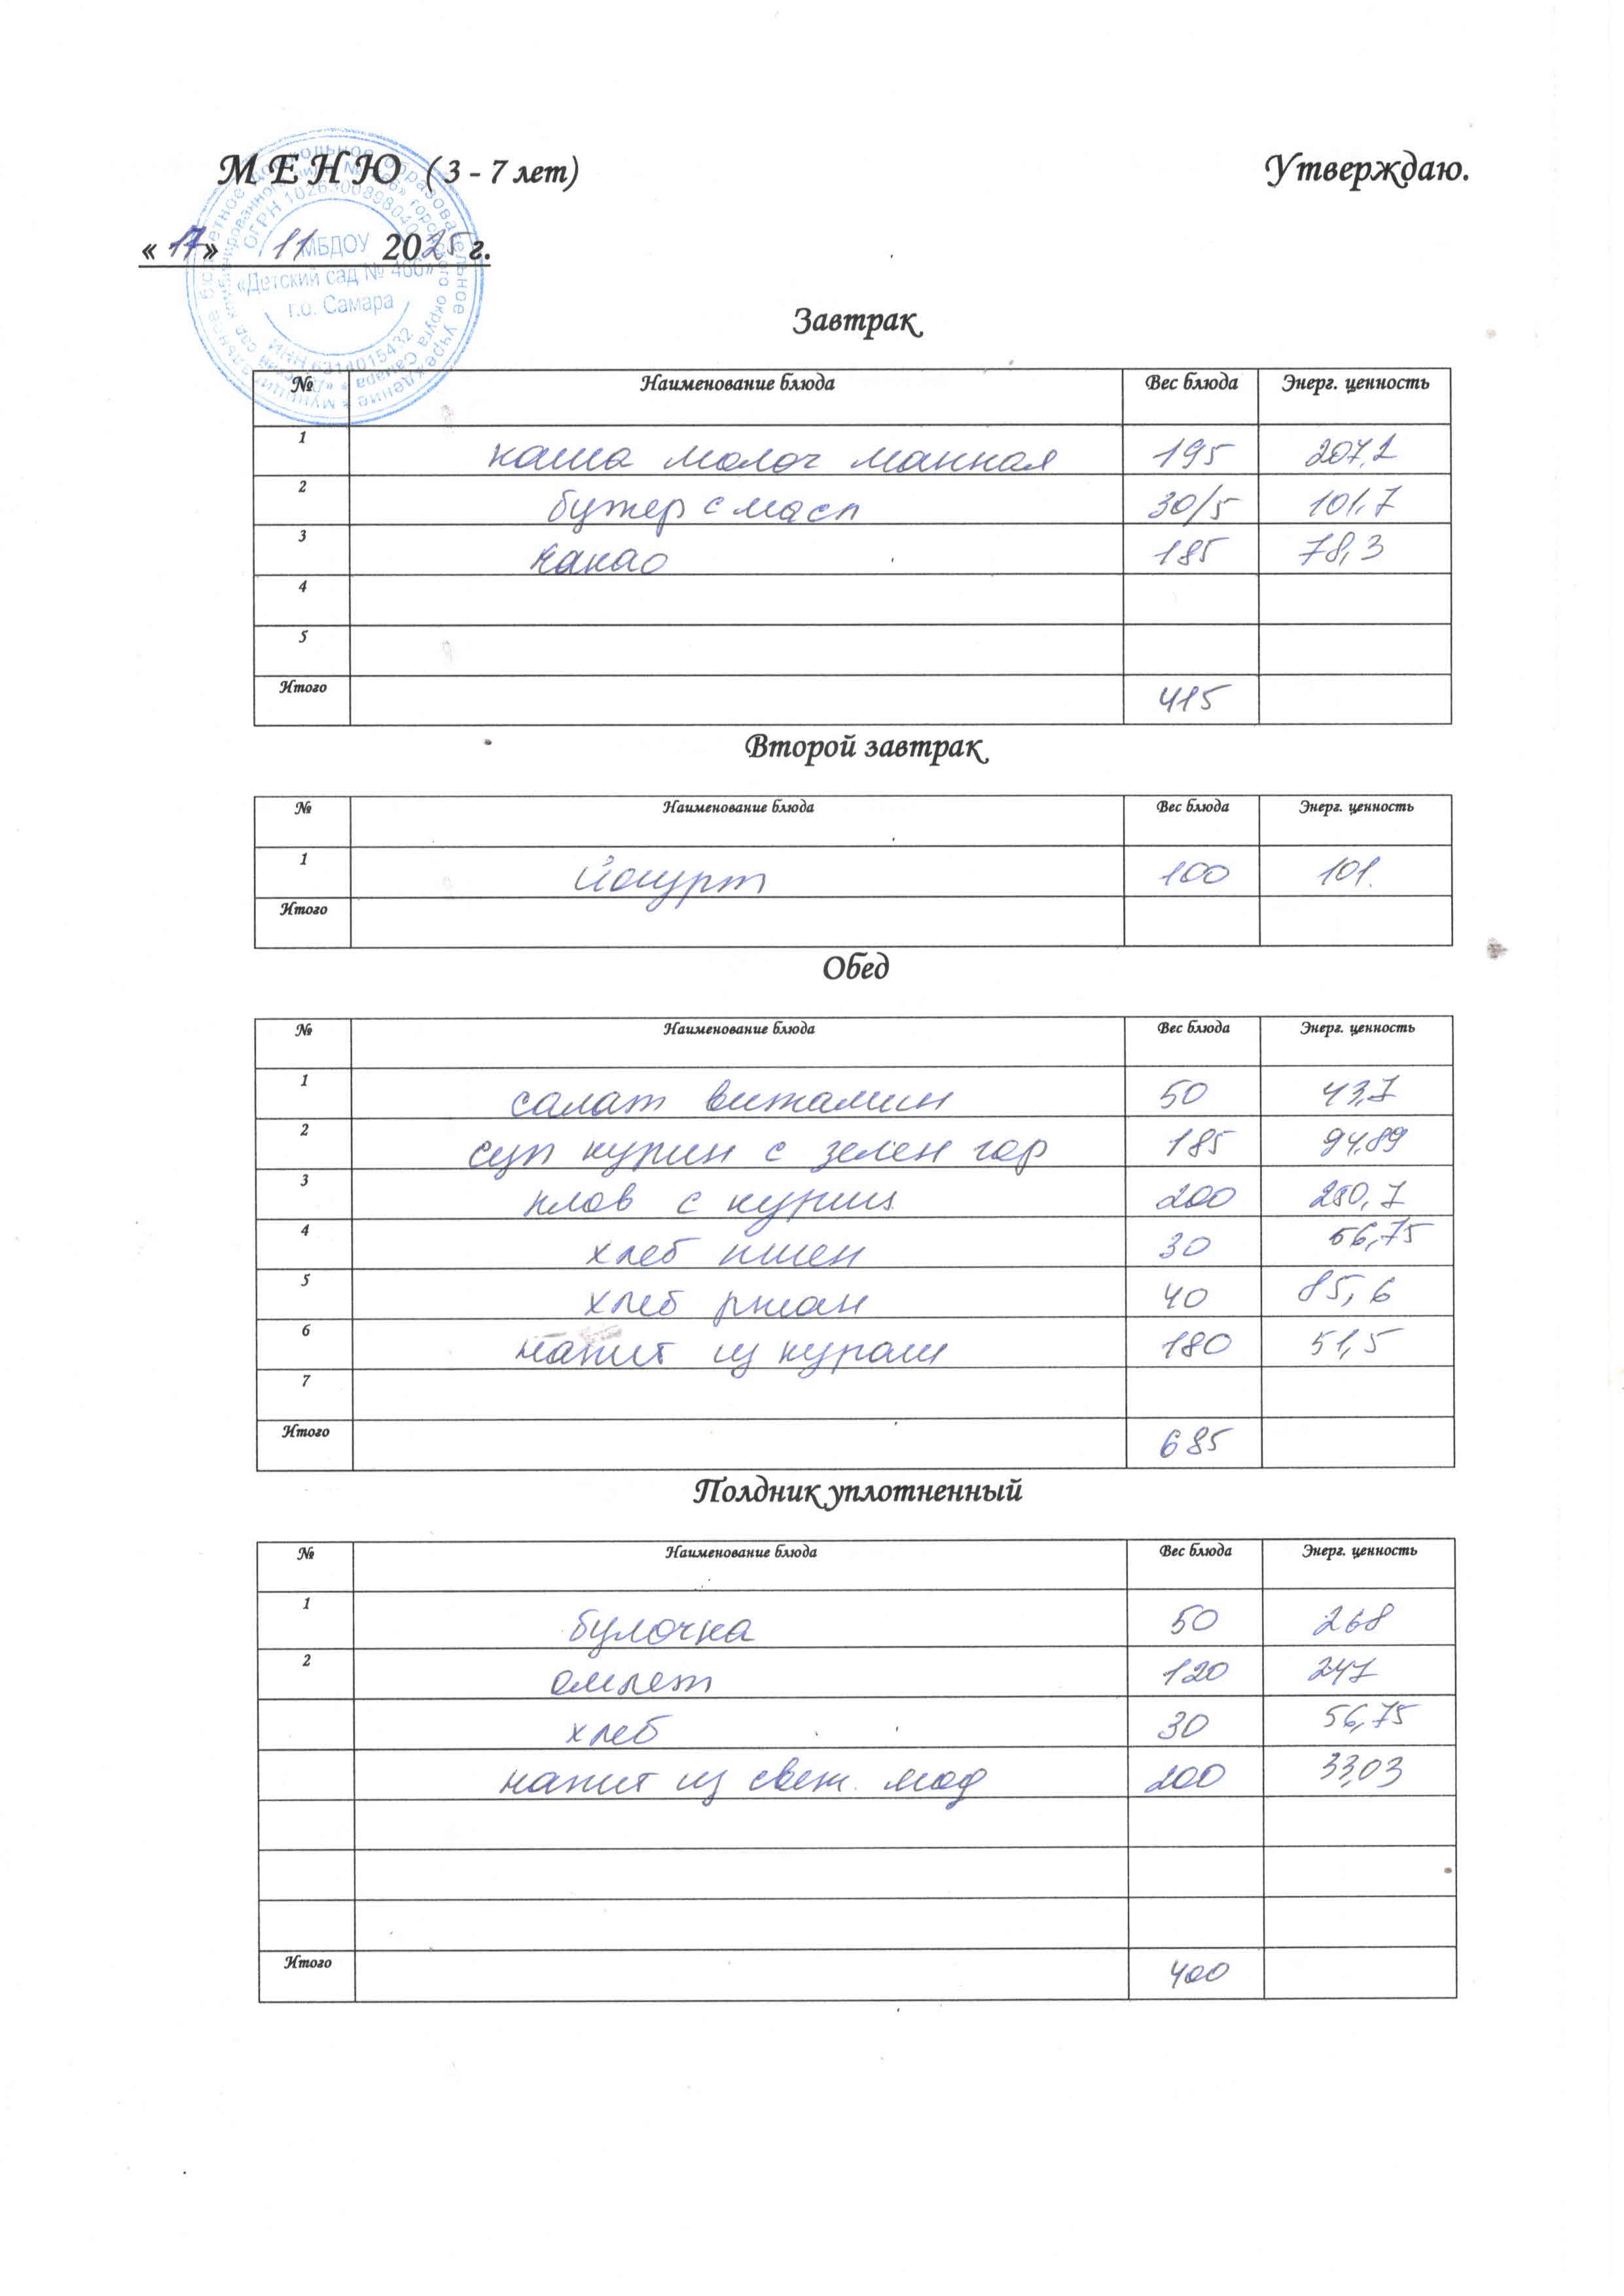 М Е Н Ю ( 3 - 7 лет) Утверждаю.
« 17 » 11 2025 г.
МБДОУ
«Детский сад № 466»
г.о. Самара
Завтрак
№ Наименование блюда Вес блюда Энерг. ценность
1 каша молоч манная 195 207,2
2 бутер с масл 30/5 101,7
3 какао 185 78,3
4
5
Итого 415
Второй завтрак
№ Наименование блюда Вес блюда Энерг. ценность
1 йогурт 100 101.
Итого
Обед
№ Наименование блюда Вес блюда Энерг. ценность
1 салат витамин 50 43,7
2 суп курин с зелен гор 185 94,89
3 плов с куриц 200 280,7
4 хлеб пшен 30 56,75
5 хлеб ржан 40 85,6
6 напит из кураги 180 51,5
7
Итого 685
Полдник уплотненный
№ Наименование блюда Вес блюда Энерг. ценность
1 булочка 50 268
2 омлет 120 247
хлеб 30 56,75
напит из свеж. яод 200 33,03
Итого 400